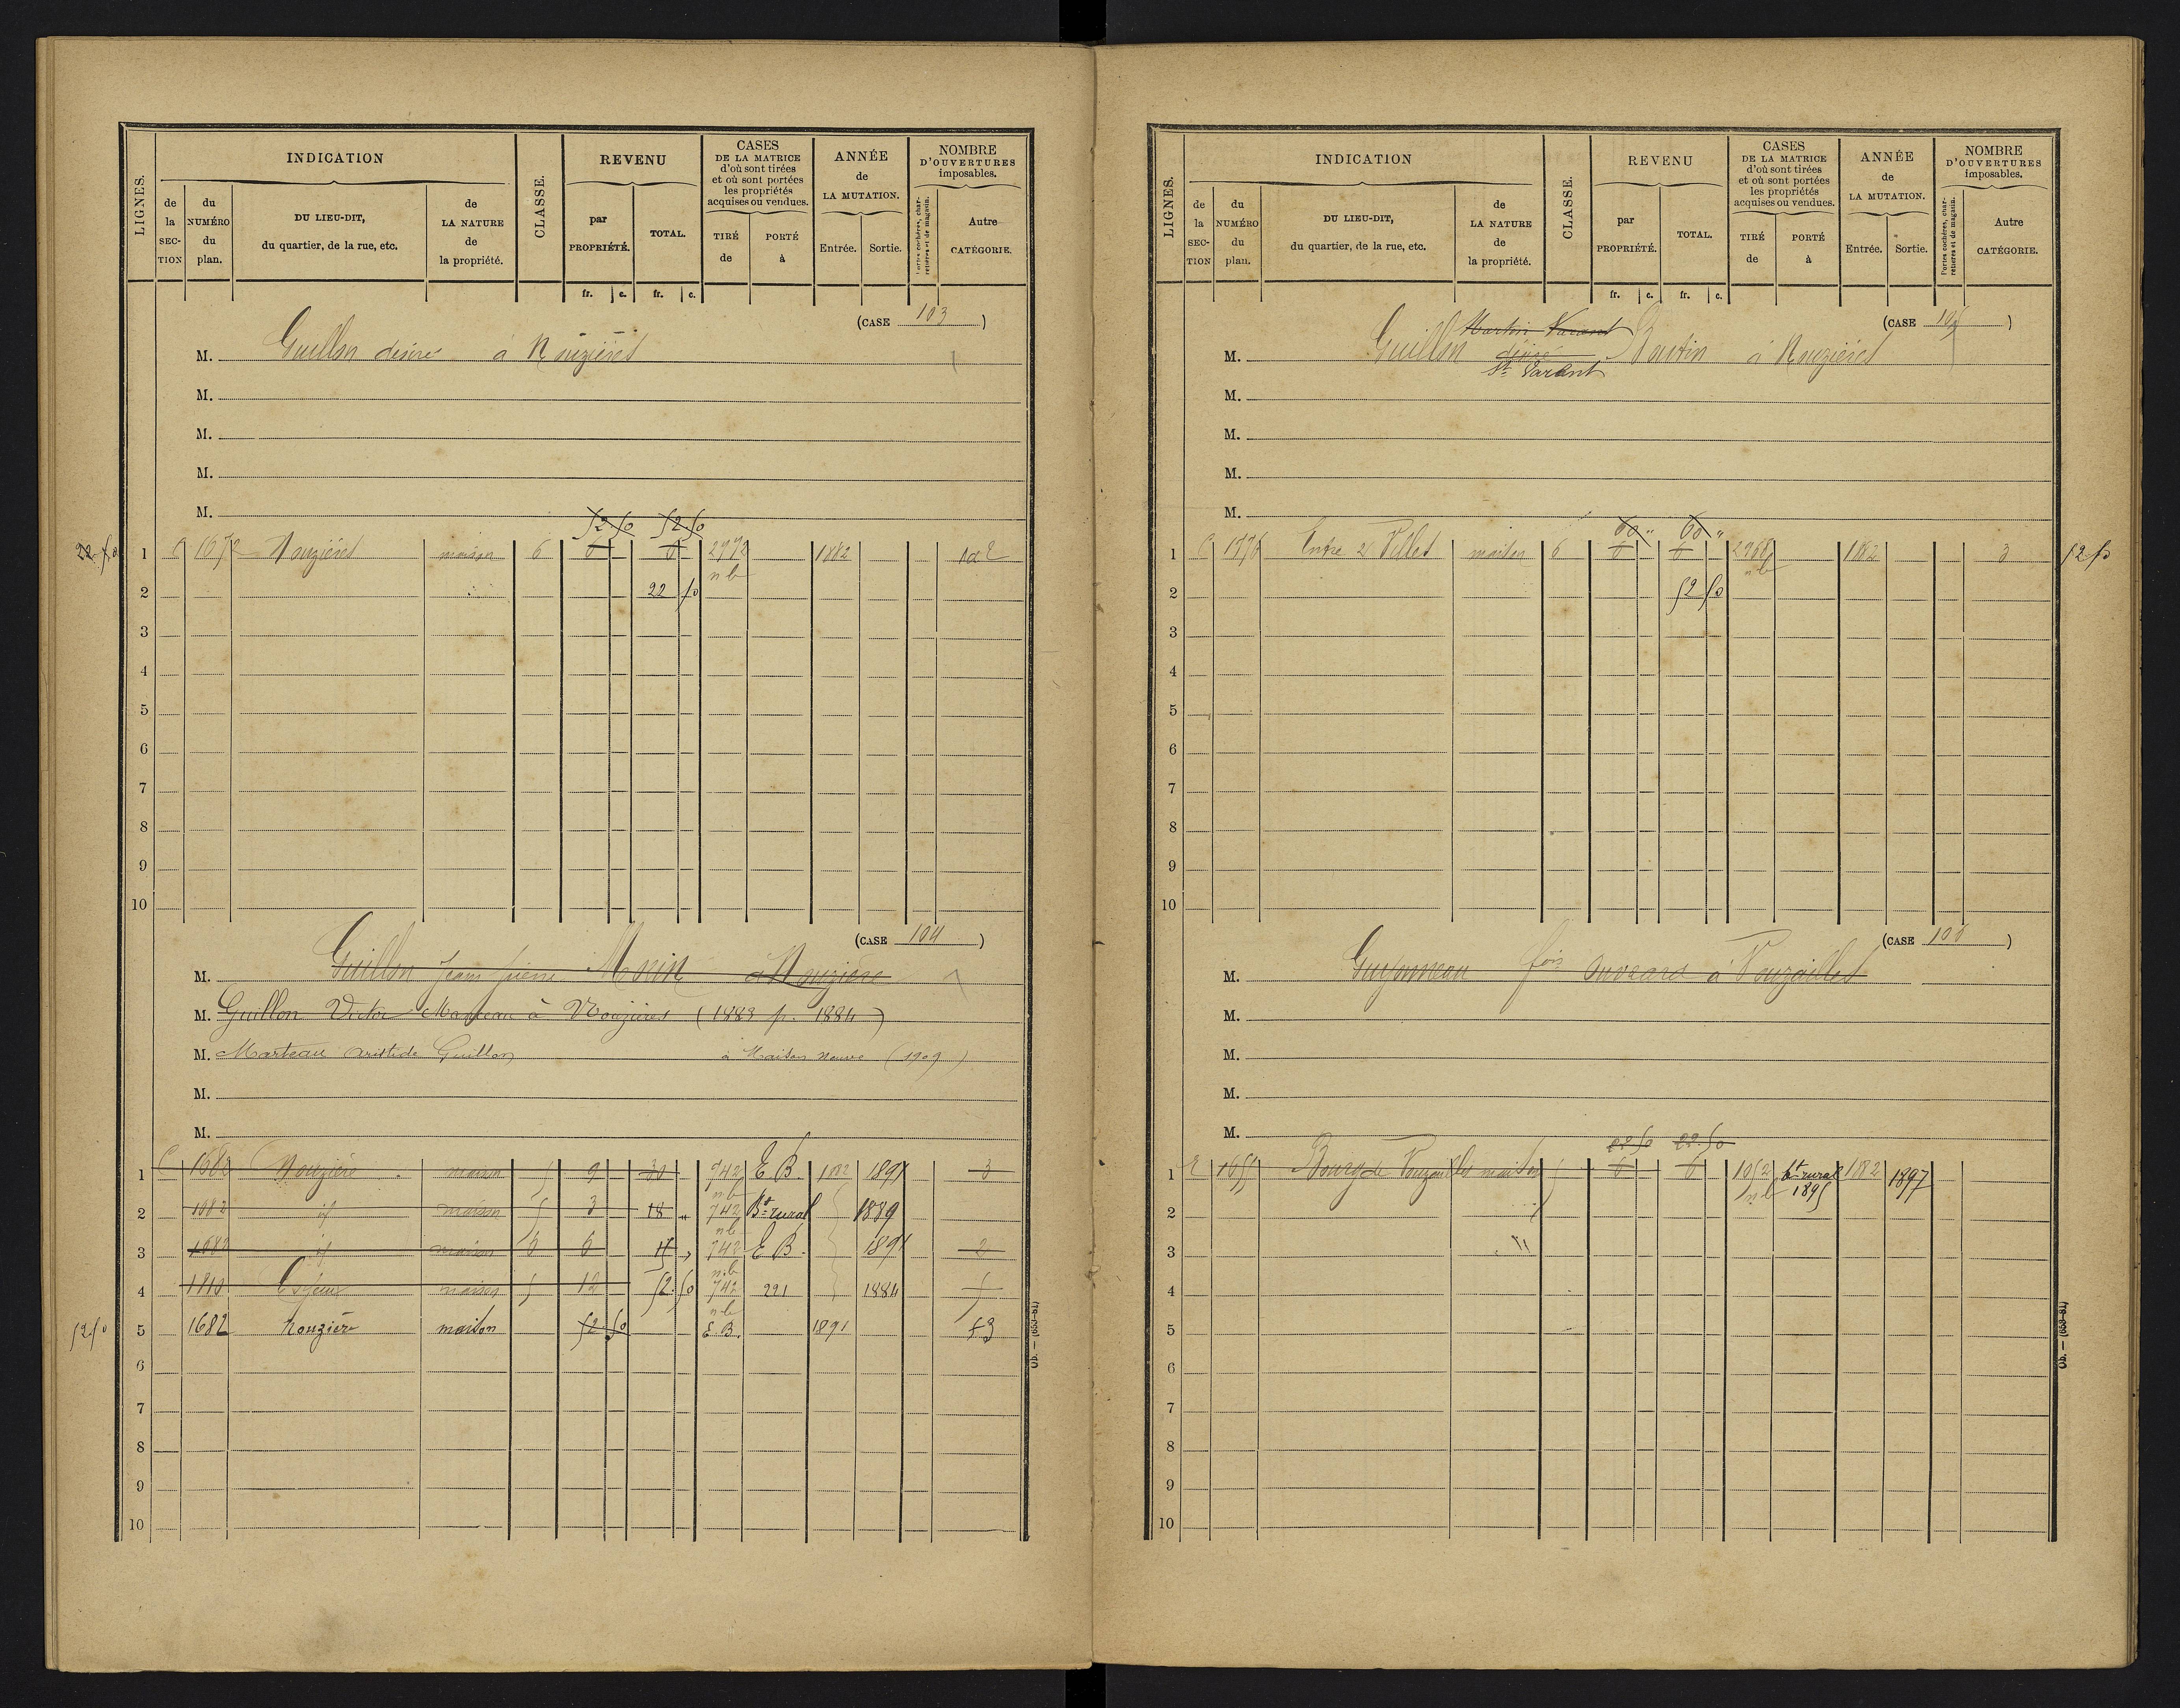 LIGNES.
INDICATION
CLASSE.
REVENU
CASES
DE LA MATRICE
d'où sont tirées
et où sont portées
les propriétés
acquises ou vendues.
ANNÉE
de
LA MUTATION.
NOMBRE
D'OUVERTURES
imposables.
de la SECTION
du NUMÉRO du plan.
DU LIEU-DIT,
du quartier, de la rue, etc.
de LA NATURE de la propriété.
par PROPRIÉTÉ.
TOTAL.
TIRÉ de
PORTÉ à
Entrée.
Sortie.
Portes cochères, charretières et de magasin.
Autre CATÉGORIE.
fr. c. fr. c.
(CASE 103)
M. Guillon désiré à Nouzières
M.
M.
M.
M.
52.50 52.50
22.50 1 C 1672 Nouzières maison 6 6 6 2972 1882
nb
2 22 50
3
4
5
6
7
8
9
10
(CASE 104)
M. Guillon Jean pierre Morin à Nouzière
M. Guillon Victor à Nouzières (1883 p. 1884)
M. Marteau aristide Guillon à Maison neuve (1909)
M.
M.
1 C 1682 Nouzière maison 5 9 30 742 E B. 1882 1891 3
nb
2 1682 id maison 5 3 18 742 Bt rural 1889
nb
3 1682 id maison 6 6 742 E B. 1891 2
nb
4 1810 maison 5 12 52.50 742 221 1884
nb
52.50 5 1682 Nouzière maison 52.50 E.B. 1891
6
7
8
9
10
Ob. — (653-81)
LIGNES.
INDICATION
CLASSE.
REVENU
CASES
DE LA MATRICE
d'où sont tirées
et où sont portées
les propriétés
acquises ou vendues.
ANNÉE
de
LA MUTATION.
NOMBRE
D'OUVERTURES
imposables.
de la SECTION
du NUMÉRO du plan.
DU LIEU-DIT,
du quartier, de la rue, etc.
de LA NATURE de la propriété.
par PROPRIÉTÉ.
TOTAL.
TIRÉ de
PORTÉ à
Entrée.
Sortie.
Portes cochères, charretières et de magasin.
Autre CATÉGORIE.
fr. c. fr. c.
(CASE 105)
Martin
M. Guillon désiré à Nouzières
St Varent
M.
M.
M.
M.
60 " 60 "
1 C 1776 Entre 2 Villes maison 6 6 6 2968 1882 3 52.50
nb
2 52 50
3
4
5
6
7
8
9
10
(CASE 106)
M. Guyonneau fois ouvrard à Vouzailles
M.
M.
M.
M.
22.50 22.50
1 E 1655 Bourg de Vouzailles maison 5 6 6 1052 bt rural 1882 1897
nb 1895
2
3
4
5
6
7
8
9
10
Ob. — (653-81)